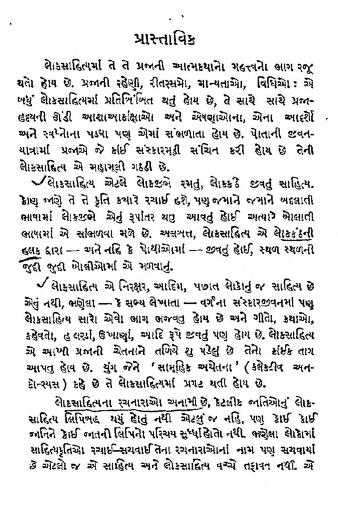 પ્રાસ્તાવિક
લોકસાહિત્યમાં તે તે પ્રજાની આત્મકથાનો મહત્ત્વનો ભાગ રજૂ
થતો હોય છે. પ્રજાની રહેણી, રીતરસમો, માન્યતાઓ, વિધિઓ : એ
બધું લોકસાહિત્યમાં પ્રતિબિંબિત થતું હોય છે, તે સાથે સાથે પ્રજા-
હૃદયની ઊંડી આશાઆકાંક્ષાઓ અને એષણાઓના, એના આદર્શો
અને સ્વપ્નોના પડઘા પણ એમાં સંભળાતા હોય છે. પોતાની જીવન-
યાત્રામાં પ્રજાએ જે કાંઈ સંસ્કારમૂડી સંચિત કરી હોય છે તેની
લોકસાહિત્ય એ મહામૂલી ગઠડી છે.
લોકસાહિત્ય એટલે લોકજીભે રમતું, લોકકંઠે જીવતું સાહિત્ય.
કોણ જાણે તે તે કૃતિ ક્યારે રચાઈ હશે, પણ જમાને જમાને બદલાતી
ભાષામાં લોકજીભે એનું રૂપાંતર થતું આવતું હોઈ અત્યારે બોલાતી
ભાષામાં એ સાંભળવા મળે છે. અલબત્ત, લોકસાહિત્ય એ લોકકંઠની
હલક દ્વારા — અને નહિ કે પોથીઓમાં — જીવતું હોઈ, સ્થળ સ્થળની
જુદી જુદી બોલીઓમાં એ મળવાનું.
લોકસાહિત્ય એ નિરક્ષર, આદિમ, પછાત લોકોનું જ સાહિત્ય છે
એવું નથી, ભણેલા — કે સભ્ય લેખાતા — વર્ગના સંસ્કારજીવનમાં પણ
લોકસાહિત્ય સારો એવો ભાગ ભજવતું હોય છે અને ગીતો, કથાઓ,
કહેવતો, હાલરડાં, ઉખાણાં, આદિ રૂપે જીવતું પણ હોય છે. લોકસાહિત્ય
એ આખી પ્રજાની ચેતનાને તળિયે શું પડેલું છે તેનો કાંઈક તાગ
આપતું હોય છે. યુંગ જેને ‘સામૂહિક અચેતના’ (કલેક્ટીવ અન-
કોન્સ્યસ) કહે છે તે લોકસાહિત્યમાં પ્રગટ થતી હોય છે.
લોકસાહિત્યના રચનારાઓ અનામી છે, કેટલીક જાતિઓનું લોક-
સાહિત્ય લિપિબદ્ધ થયું હોતું નથી એટલું જ નહિ, પણ કોઈ કોઈ
જાતિને કોઈ જાતની લિપિનો પરિચય સુધ્ધાં હોતો નથી. ભણેલા લોકોમાં
સાહિત્યકૃતિઓ રચાઈ–સચવાઈ તેના રચનારાઓનાં નામ પણ સચવાયાં
છે એટલો જ એ સાહિત્ય અને લોકસાહિત્ય વચ્ચે તફાવત નથી. એ